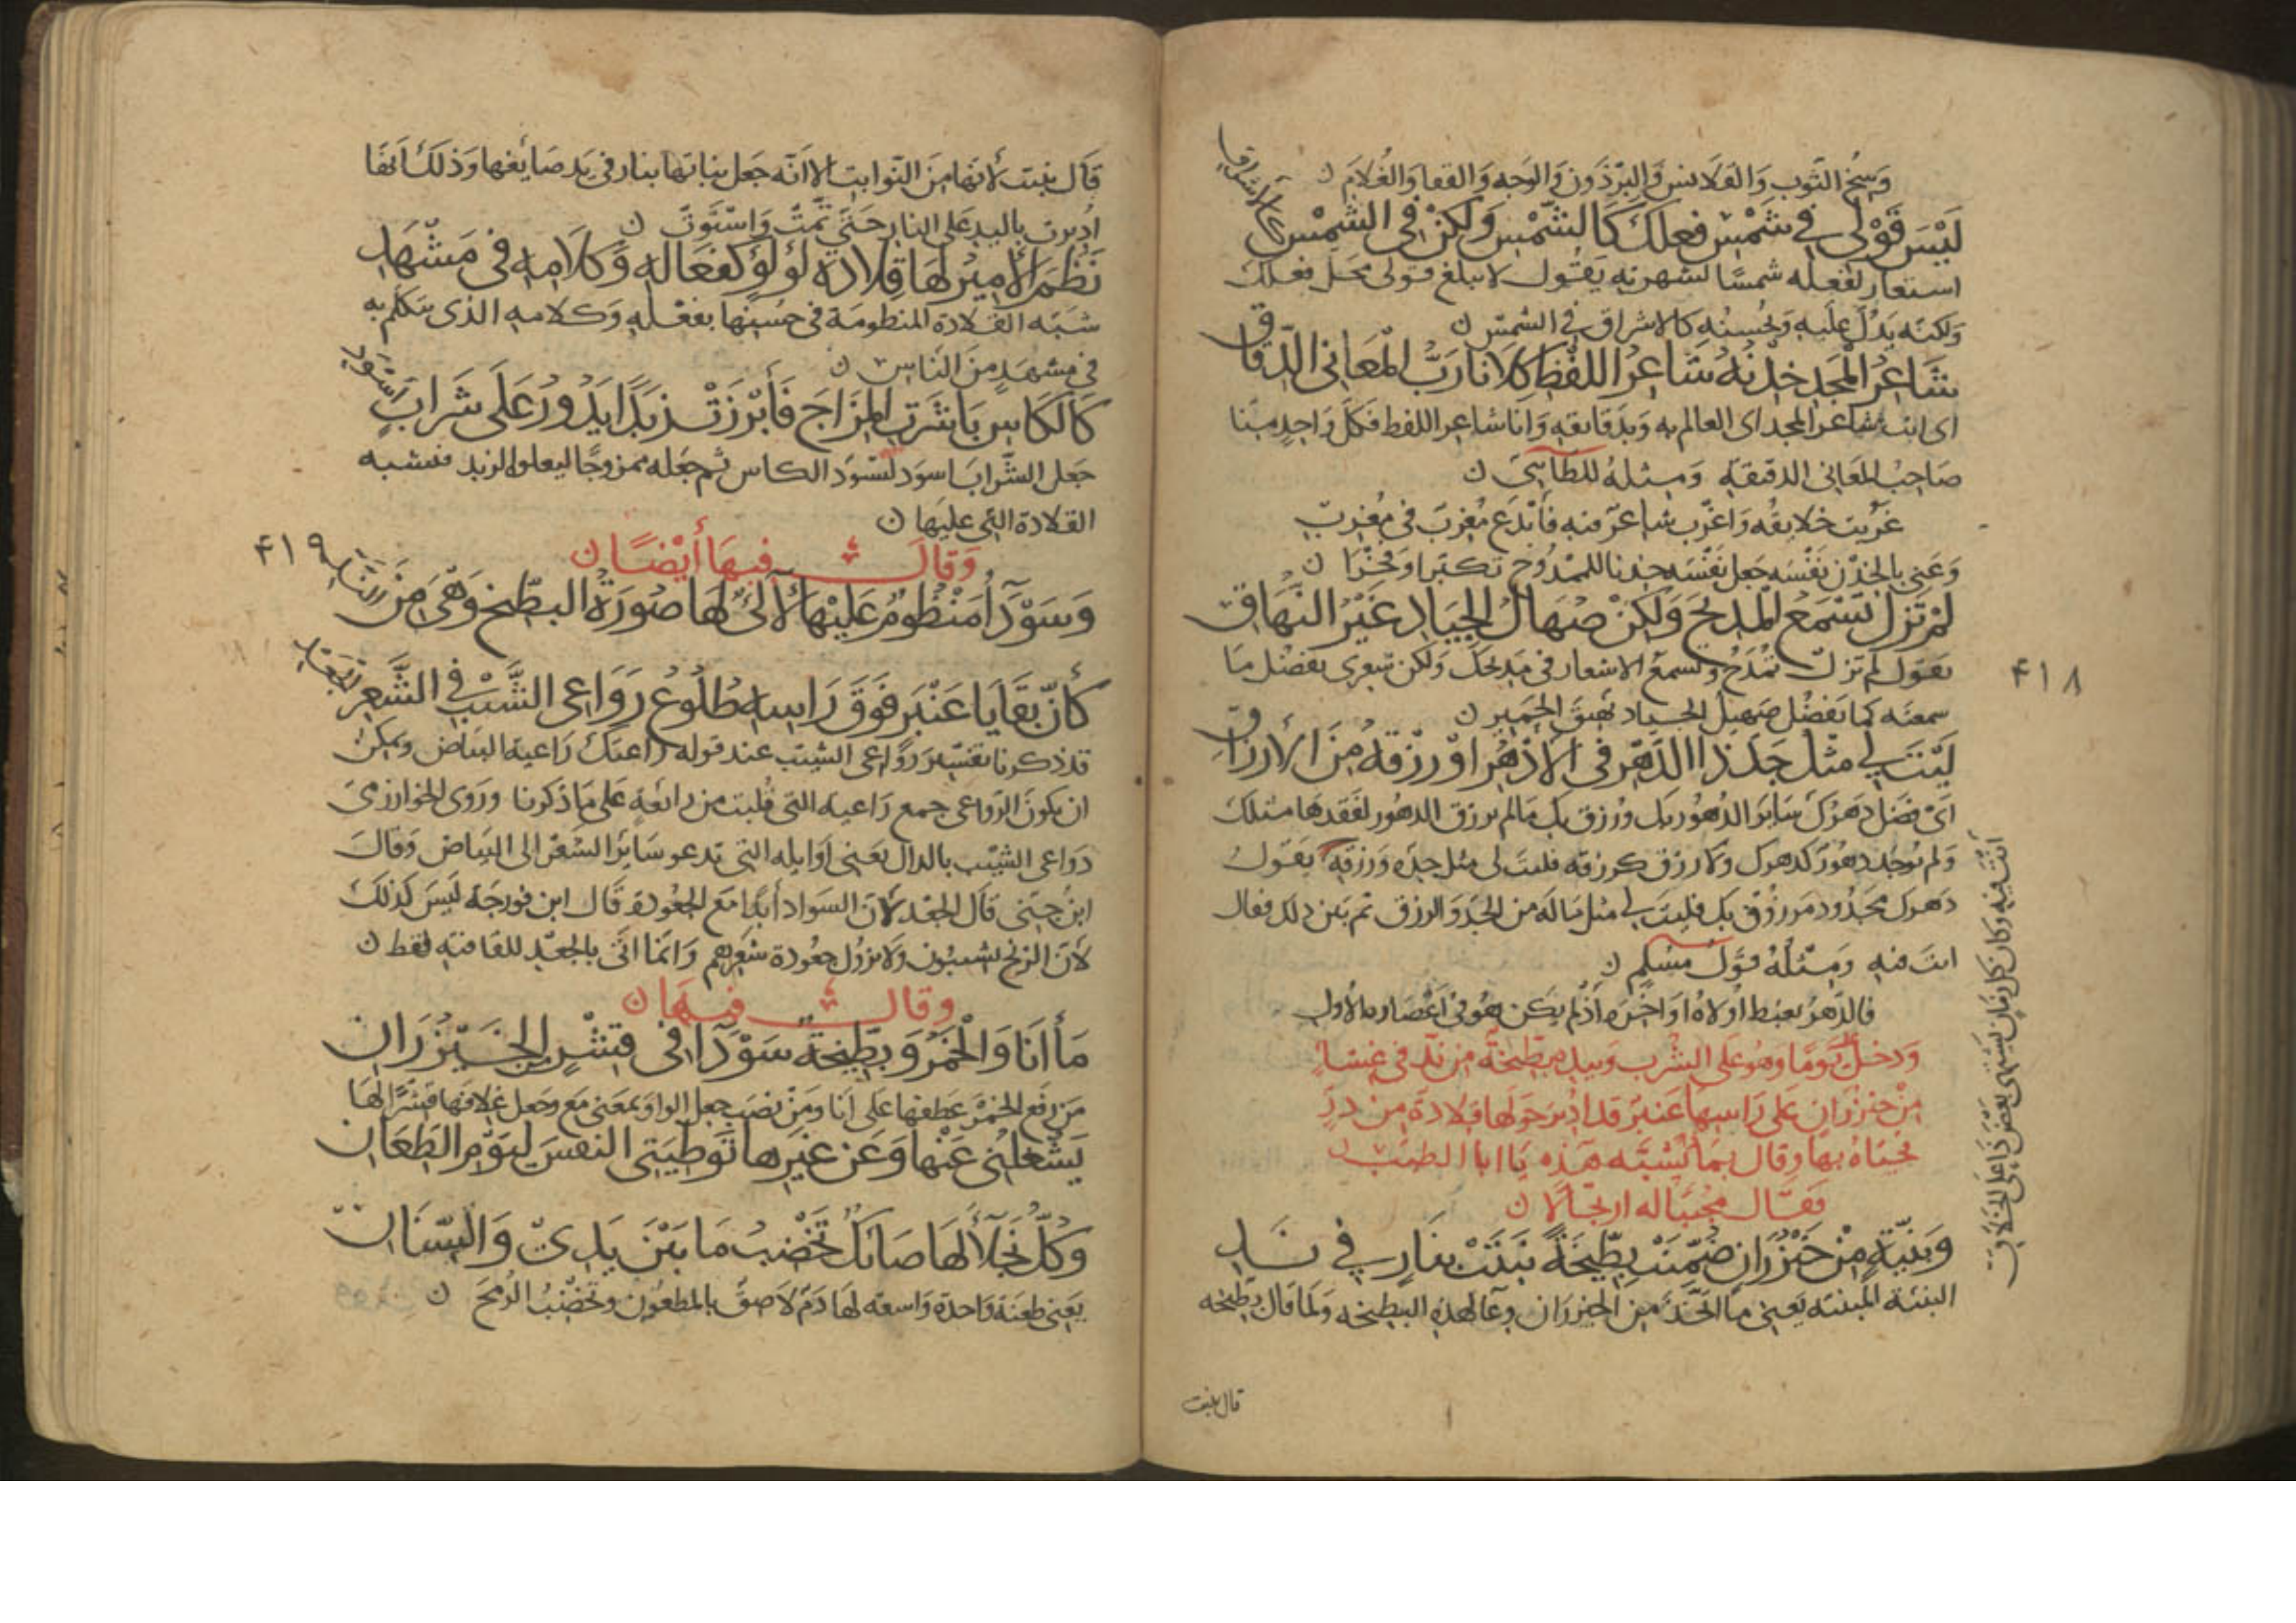 وَسِخُ الثَّوبِ وَالقَلَانِسِ وَالبِرْذَونِ وَالوَجهِ وَالقفا وَالغُلَامِ ن
لَيْسَ قَوْلِي فِي شَمْسِ فعلكَ كَالشَّمْسِ وَلكِنْ فِي الشَّمْسِ كَالْاشراقِ
استعار لفعله شمسًا لشهرته يَقُول لا يبلغ قولى محل فعلك
وَلكنّه يَدُلّ علَيهِ وَيُحسِنُه كالاشراق فِي الشمس ن
شَاعِرُ الْمَجدِ خِدْنُهُ شَاعِرُ اللفْظِ كِلَانا رَبُّ الْمعَانِى الدِّقَاقِ
اى انت شاعر المجد اى العالم به وَبدَقايقه وَانا شاعر اللفظ فكلّ وَاحدٍ منّا
صَاحِبُ المعَانى الدقيقةِ وَمِثلهُ للطَّائيّ ن
غَرُبت خلايقُه وَاغرَب شاعرٌ فيه فَأبدَع مُغرِبٌ في مُغرِبِ
وَعَنى بالخِدْن نَفْسَه جعل نفْسَه خِدنا للممدُوح تكبّرا وَفخْرًا ن
لَمْ تَزل تَسْمَعُ الْمديحَ وَلكِنّ صهَالَ الجِيَادِ غَيْرُ النُّهَاقِ
يقول لم تزل تُمْدَحُ وَتسمع الاشعار في مديحك وَلكن شِعرى يفضُل مَا
سمعته كما يفضُل صهيل الجياد نهيق الحمير ن
لَيْتَ لِي مثْلَ جَدِّ ذا الدَّهْرِ في الْاَدْهُرِ اوْ رِزْقهِ مِنَ الْأَرْزاقِ
اىْ فضَل دَهرُكَ سَايرَ الدُهُور بكَ ورُزق بك مَا لم يرزق الدهُور لفَقدهَا مثلك
وَلم يُوجَد دهُورٌ كدهرك وَلا رزق كرزقه فليتَ لى مثل جدّه وَرزقه يقول
دَهرك مجدُود مَرزُوْقٌ بك فليتَ لي مثل مَا لَه من الجدّ وَالرزق ثم بيّن ذلك فقال
انتَ فيهِ وَمِثْلُهُ قوَل مسْلم ن
فالدّهرُ يغبط اُولَاهُ اوَاخِرَه اذْ لم يكن هُو في اَعْصَاره الأُول
وَدخلَ يَومًا وَهُو عَلى الشرب وَبيده بطّيخةٌ من ندّ في غشاءٍ
مِنْ خيزُرَانٍ عَلى رَاسِهَا عَنبر قد ادُير حَولهَا قلَادَةٌ من دُرّ
فحيّاهُ بها وَقال بِمَا تُشبِّه هَذه يَا ابا الطيّب ن
فقَال مجيبًا له ارتجالًا ن
وَبَنِيَّةٍ مِنْ خَيْزُرَانٍ ضُمِّنَتْ بِطِّيخَةً نَبَتَتْ بِنَارٍ فِي يَدِ
البنيّة المبنيّة يَعني مَا اتُّخِذَ من الخيزرَان وعَآ لهذه البطيخه وَلما قال بطّيخه
قال نبتت
أنتَ فيهِ وَكان كل زمَانٍ يَشتَهى بَعْضَ ذَا عَلى الخلّاقِ
۴۱۸
قَال نبتت لأنّها مِنَ النّوابت الا اَنّه جَعل نباتها بنار في يَد صَايغها وَذلكَ اَنهَا
اُديرت باليد عَلى النار حَتَّى تَمّتْ وَاسْتَوَتْ ن
نَظَمَ الأَمِيرُ لَهَا قِلادَة لُؤْلُؤٍ كفعَالهِ وَكلَامِهِ في مَشْهَدِ
شبّه القلادة المنظومة في حُسنِها بفعْله وَكلامهِ الذى يتكلم به
في مشهدٍ مِنَ الناس ن
كَالكَاسِ بَاشَرَتِ المِزَاجَ فَأَبْرَزَتْ زبَدًا يَدُورُ عَلَى شَرَابٍ اَسْوَدِ
جَعل الشّراب اسوَد لسَوَد الكاس ثم جَعَله ممزوجًا ليعلوا الزبد فيشبه
القلادة التي عليها ن
وَقالَ فيهَا أَيْضًا ن
۴۱۹
وَسَوْدَآءَ مَنْظُومٍ عَلَيْهَا لَآلِئٌ لهَا صُورَةُ البطّيخِ وَهْيَ مِنَ النَّدِ
كَأَنّ بقَايَا عَنْبَرٍ فَوقَ رَاسِهَا طُلُوعُ رَوَاعِى الشَّيْبِ فِي الشَّعَرِ الْجَعْدِ
قد ذكرنا تفسير روَاعى الشيب عند قوله رَاعتك رَاعية البيَاض وَيمكن
ان يكون الرّواعى جمع رَاعيه التي قُلبت من رايعَةٍ عَلى مَا ذكرنا وروَى الخوارزمى
دَوَاعى الشيْب بالدال يَعنى اَوَايله التي تدعو سَاير الشَعْر الى البيَاض وَقالَ
ابنُ جنّى قال الجعد لأنّ السوَاد أبدًا مَع الجعُودَة قال ابن فورجَة ليَس كذلك
لأنّ الزنج يشيبُون وَلا يزول جعُودة شعرهم وَانما اتى بالجعد للقافية فقط ن
وقال فيهَا ن
مَا أَنَا وَالْخَمْرُ وَبِطِّيخةٌ سَوْدَآءُ في قِشْرٍ مِنَ الخَيْزُرَانِ
مَن رفَع الخمرَ عطفها عَلى اَنا وَمَنْ نصَب جعل الواو بمعنى مَع وَجعل غلافها قشْرًا لهَا
يَشْغَلُنِي عَنْهَا وَعَن غَيْرِها تَوطِيَتى النفسَ ليَوْمِ الطِّعَانِ
وَكُلُّ نَجْلَآءَ لَهَا صَائكٌ تَخْضِبُ مَا بَيْنَ يَدِىْ وَالسِّنَانِ
يَعنى طعنَة وَاحدَة وَاسعة لهَا دَمٌ لَاصِقٌ بالمطعُون وَتخضِبُ الرُمحَ ن